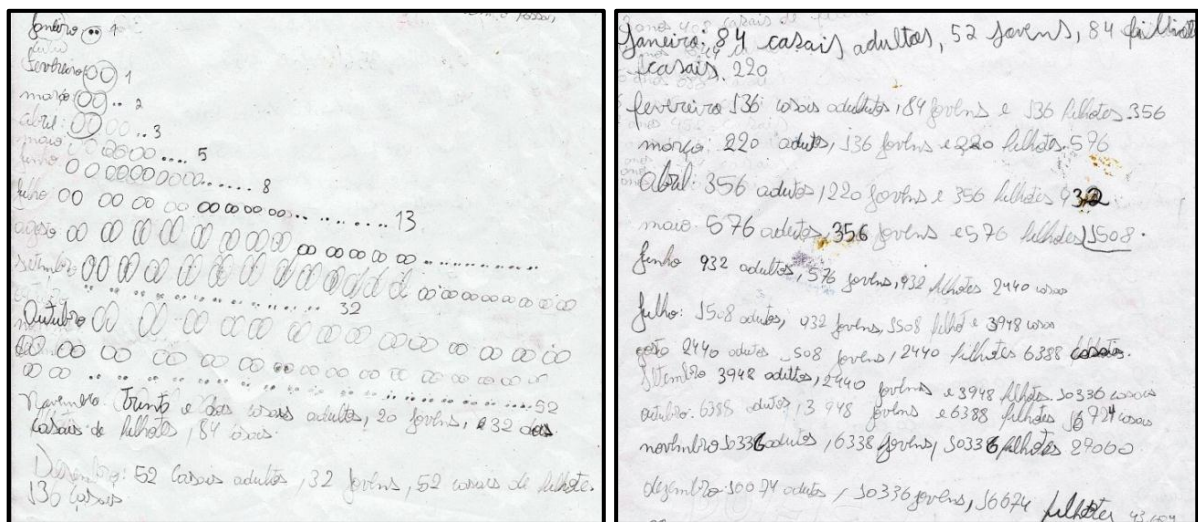 Janeiro 1
Fevereiro 1
março 2
abril: 3
maio 5
junho 8
julho 13
agosto
setembro
32
Outubro
52
Novembro. Trinta e dois casais adultos, 20 jovens, e 32
casais de filhotes, 84 casais.
Dezembro: 52 casais adultos, 32 jovens, 52 casais de filhotes.
136 casais
Janeiro: 84 casais adultos, 52 jovens, 84 filhotes
casais. 220
fevereiro 136 casais adultos, 84 jovens e 136 filhotes. 356
março: 220 adutos, 136 jovens e 220 filhotes. 576
Abril: 356 adutos, 220 jovens e 356 filhotes 932
maio. 576 adutos, 356 jovens e 576 filhotes 1508.
Junho 932 adultos, 576 jovens, 932 filhotes 2440
Julho: 1508 adutos, 932 jovens, 1508 3948
2440 adutos 508 jovens, 2440 filhotes 6388
Setembro 3948 adultos, 2440 jovens e 3948 filhotes. 10336 casais
outubro. 6388 adutos, 3948 jovens e 6388 filhotes 16724 casais
novembro 10336 adutos, 6338 jovens, 10336 filhotes 27060
dezembro 10074 adutos, 10336 jovens, 16674 filhotes